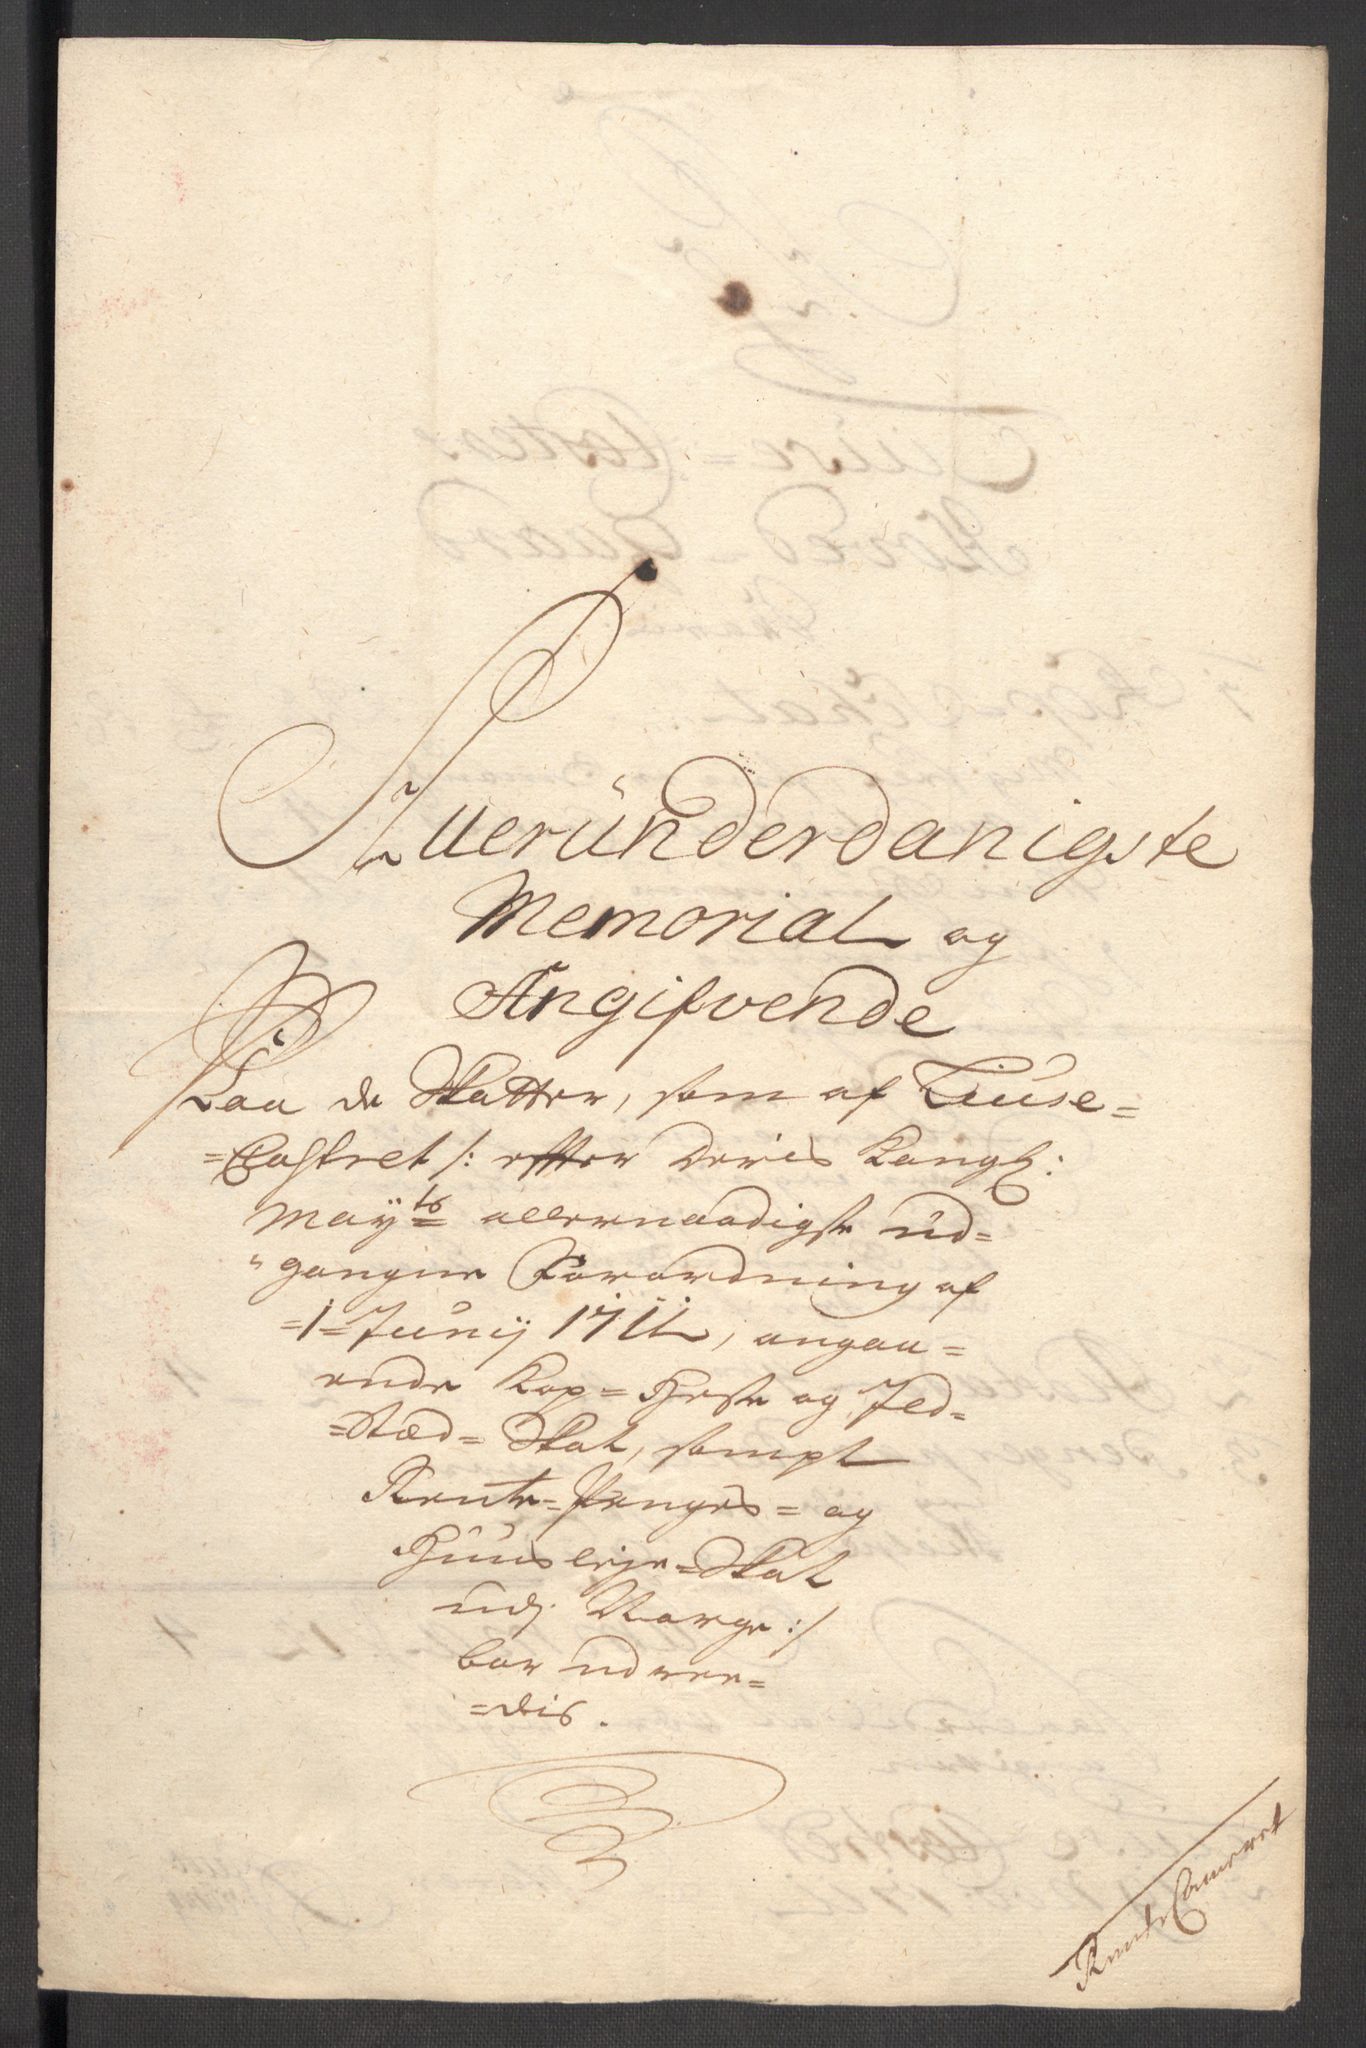 Alleründerdanigste
Memorial og
Angifvende
Paa de Skatter, som af Liuse=
=Closteret /: effter Deris Kongl:
Mayts allernaadigste ud=
gangne Forordning af
=1= Junij 1711, angaa=
ende Kop= Heste og Ild=
=stæd= Skat, sampt
Rente= Penges= og
Huusleye=Skat
udj Norge :/
bør udree=
=dis.
Rente Cammeret